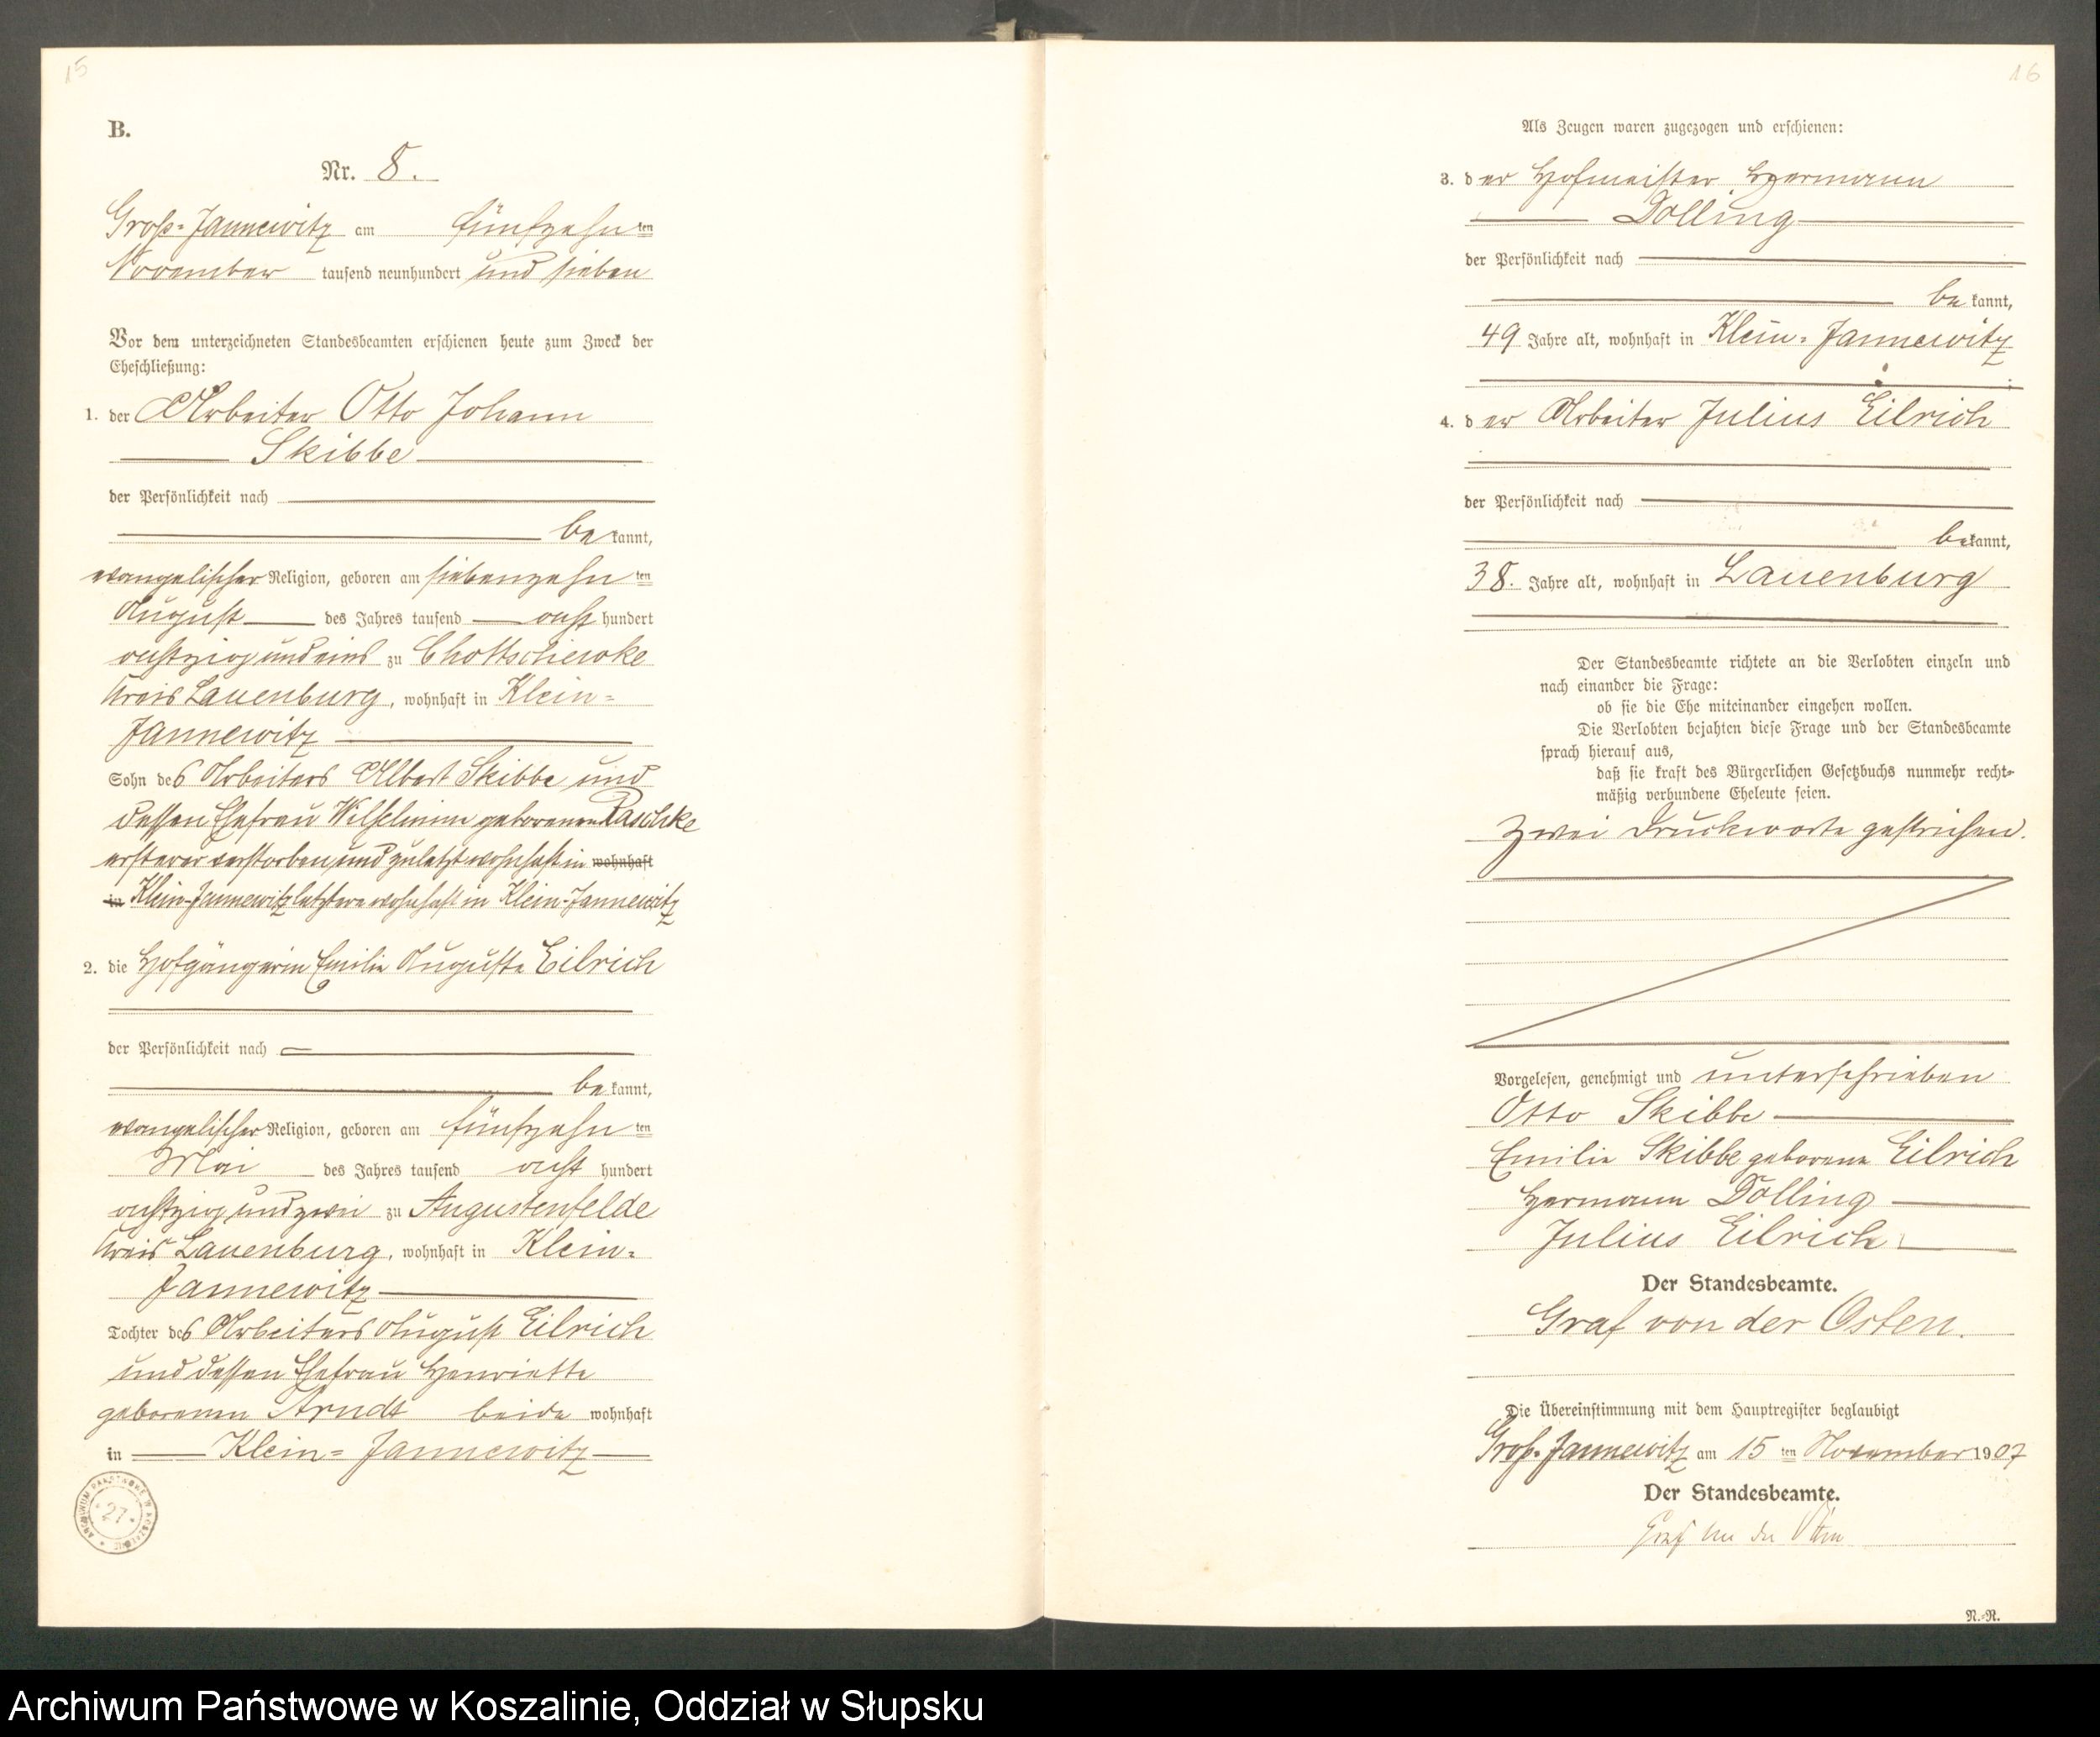 15
B.
Nr. 8.
Groß-Jannewitz am fünfzehn ten
November tausend neunhundert und sieben
Vor dem unterzeichneten Standesbeamten erschienen heute zum Zweck der
Eheschließung:
1. der Arbeiter Otto Johann
Skibbe
der Persönlichkeit nach
be kannt,
evangelischer Religion, geboren am siebenzehn ten
August des Jahres tausend acht hundert
achtzig und eins zu Chottschewke
Kreis Lauenburg, wohnhaft in Klein-
Jannewitz
Sohn des Arbeiters Albert Skibbe und
dessen Ehefrau Wilhelmine geborenen Raschke
ersterer verstorben und zuletzt wohnhaft in wohnhaft
in Klein-Jannewitz letztere wohnhaft in Klein-Jannewitz
2. die Hofgängerin Emilie Auguste Eilrich
der Persönlichkeit nach
be kannt,
evangelischer Religion, geboren am fünfzehn ten
Mai des Jahres tausend acht hundert
achtzig und zwei zu Augustenfelde
Kreis Lauenburg, wohnhaft in Klein-
Jannewitz
Tochter des Arbeiters August Eilrich
und dessen Ehefrau Henriette
geborenen Arndt beide wohnhaft
in Klein-Jannewitz
ARCHIWUM PAŃSTWOWE W KOSZALINIE
27
16
Als Zeugen waren zugezogen und erschienen:
3. der Hofmeister Hermann
Dolling
der Persönlichkeit nach
be kannt,
49 Jahre alt, wohnhaft in Klein-Jannewitz
4. der Arbeiter Julius Eilrich
der Persönlichkeit nach
be kannt,
38. Jahre alt, wohnhaft in Lauenburg
Der Standesbeamte richtete an die Verlobten einzeln und
nach einander die Frage:
ob sie die Ehe miteinander eingehen wollen.
Die Verlobten bejahten diese Frage und der Standesbeamte
sprach hierauf aus,
daß sie kraft des Bürgerlichen Gesetzbuchs nunmehr recht-
mäßig verbundene Eheleute seien.
Zwei Druckworte gestrichen.
Vorgelesen, genehmigt und unterschrieben
Otto Skibbe
Emilie Skibbe geborene Eilrich
Hermann Dolling
Julius Eilrich
Der Standesbeamte.
Graf von der Osten.
Die Übereinstimmung mit dem Hauptregister beglaubigt
Groß-Jannewitz am 15 ten November 1907
Der Standesbeamte.
Graf von der Osten
N.-N.
Archiwum Państwowe w Koszalinie, Oddział w Słupsku